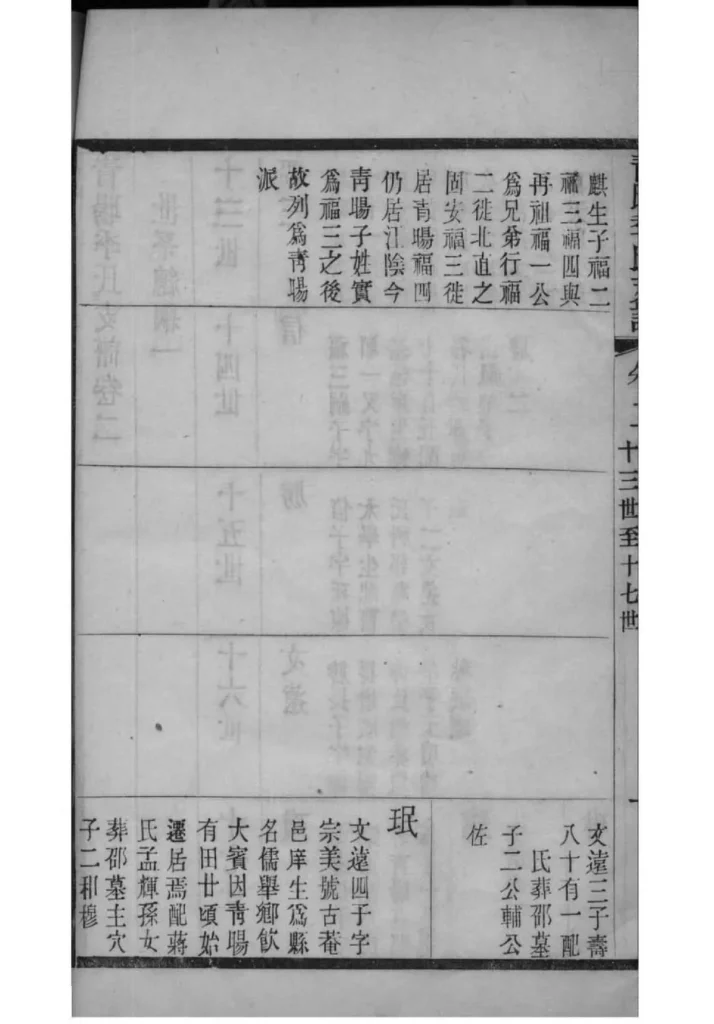 卷二十三世至十七世
麒生子福二
福三福四與
再祖福一公
爲兄弟行福
二徙北直之
固安福三徙
居青暘福四
仍居江陰今
青暘子姓實
爲福三之後
故列爲青暘
派
文遠三子壽
八十有一配
氏葬邵墓
子二公輔公
佐
珉
文遠四子字
宗美號古菴
邑庠生爲縣
名儒舉鄉飲
大賓因青暘
有田廿頃始
遷居焉配蔣
氏孟輝孫女
葬邵墓主穴
子二和穆